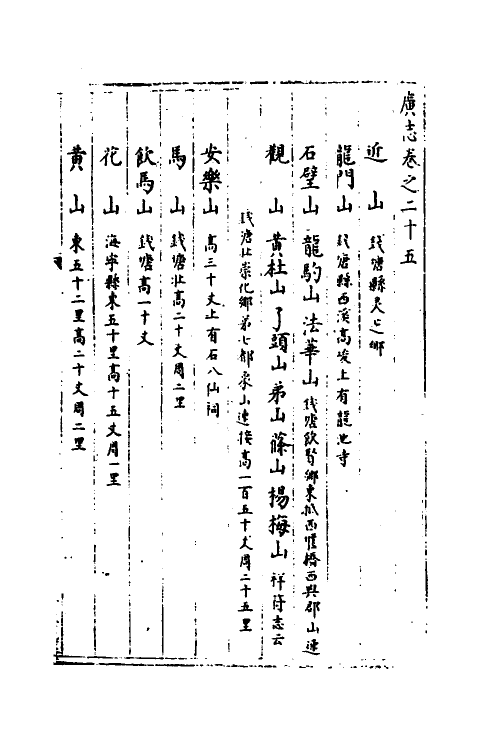 廣志卷之二十五
近山 錢塘縣灵芝鄉
龍門山 錢塘縣西溪高峻上有龍池寺
石壁山 龍駒山 法華山 錢塘欽賢鄉東抵西堰橋西與郡山連
觀山 黄杜山 了頭山 弟山 蓧山 楊梅山 祥符志云
錢塘北崇化鄉第七都衆山連接高一百五十丈周二十五里
安樂山 高三十丈上有石八仙祠
馬山 錢塘北高二十丈周二里
飲馬山 錢塘高一十丈
花山 海寧縣東五十里高十五丈周一里
黄山 東五十二里高二十丈周二里